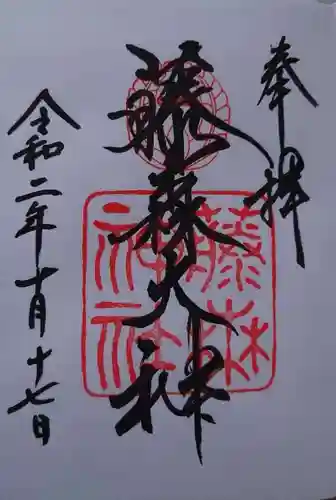 奉拝
藤森大神
藤森神社
令和二年十月十七日